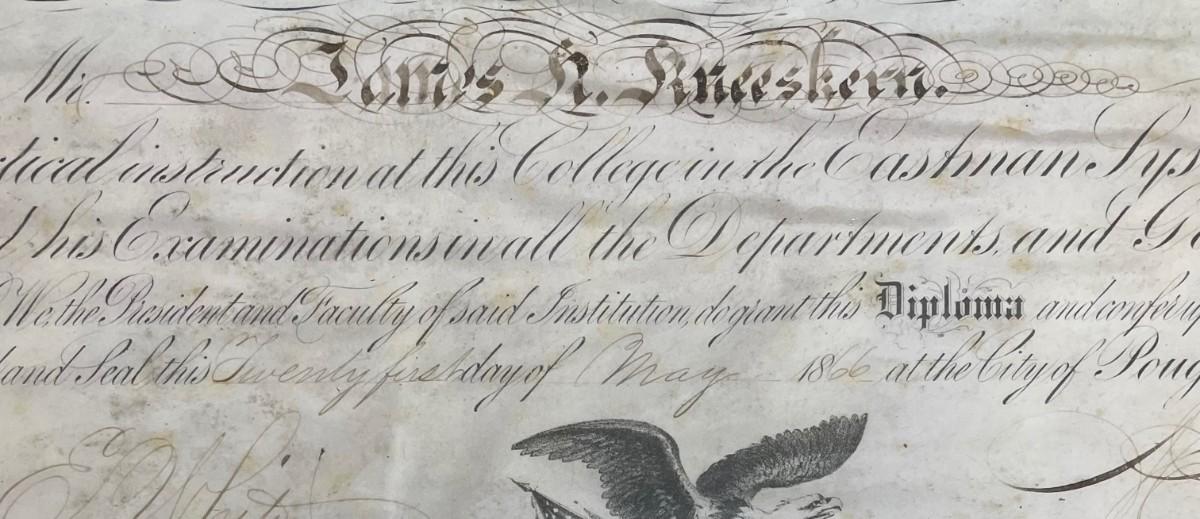 Mr. James K. Kneeskern.
tical instruction at this College in the Eastman Sys
d his Examinations in all the Departments, and G
We, the President and Faculty of said Institution, do grant this Diploma and confer up
and Seal this Twenty first day of May 1866 at the City of Poug
E. White